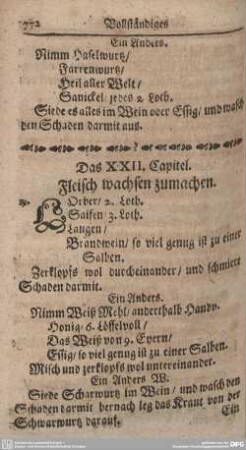 772 Vollständiges
Ein Anders.
Nimm Haselwurtz/
Farrenwurtz/
Heil aller Welt/
Sanickel/ jedes 2. Loth.
Siede es alles im Wein oder Essig/ und wasch
den Schaden darmit aus.
Das XXII. Capitel.
Fleisch wachsen zumachen.
LOrber/ 2. Loth.
Saiffen 3. Loth.
Laugen/
Brandwein/ so viel genug ist zu einer
Salben.
Zerklopfs wol durcheinander/ und schmiere
Schaden darmit.
Ein Anders.
Nimm Weiß Mehl/ anderthalb Handv.
Honig/ 6. Löffelvoll/
Das Weiß von 9. Eyern/
Essig/ so viel genug ist zu einer Salben.
Misch und zerklopfs wol untereinander.
Ein Anders W.
Siede Scharwurtz im Wein/ und wasch den
Schaden darmit hernach leg das Kraut von der
Schwarwurtz darauf.
Ein